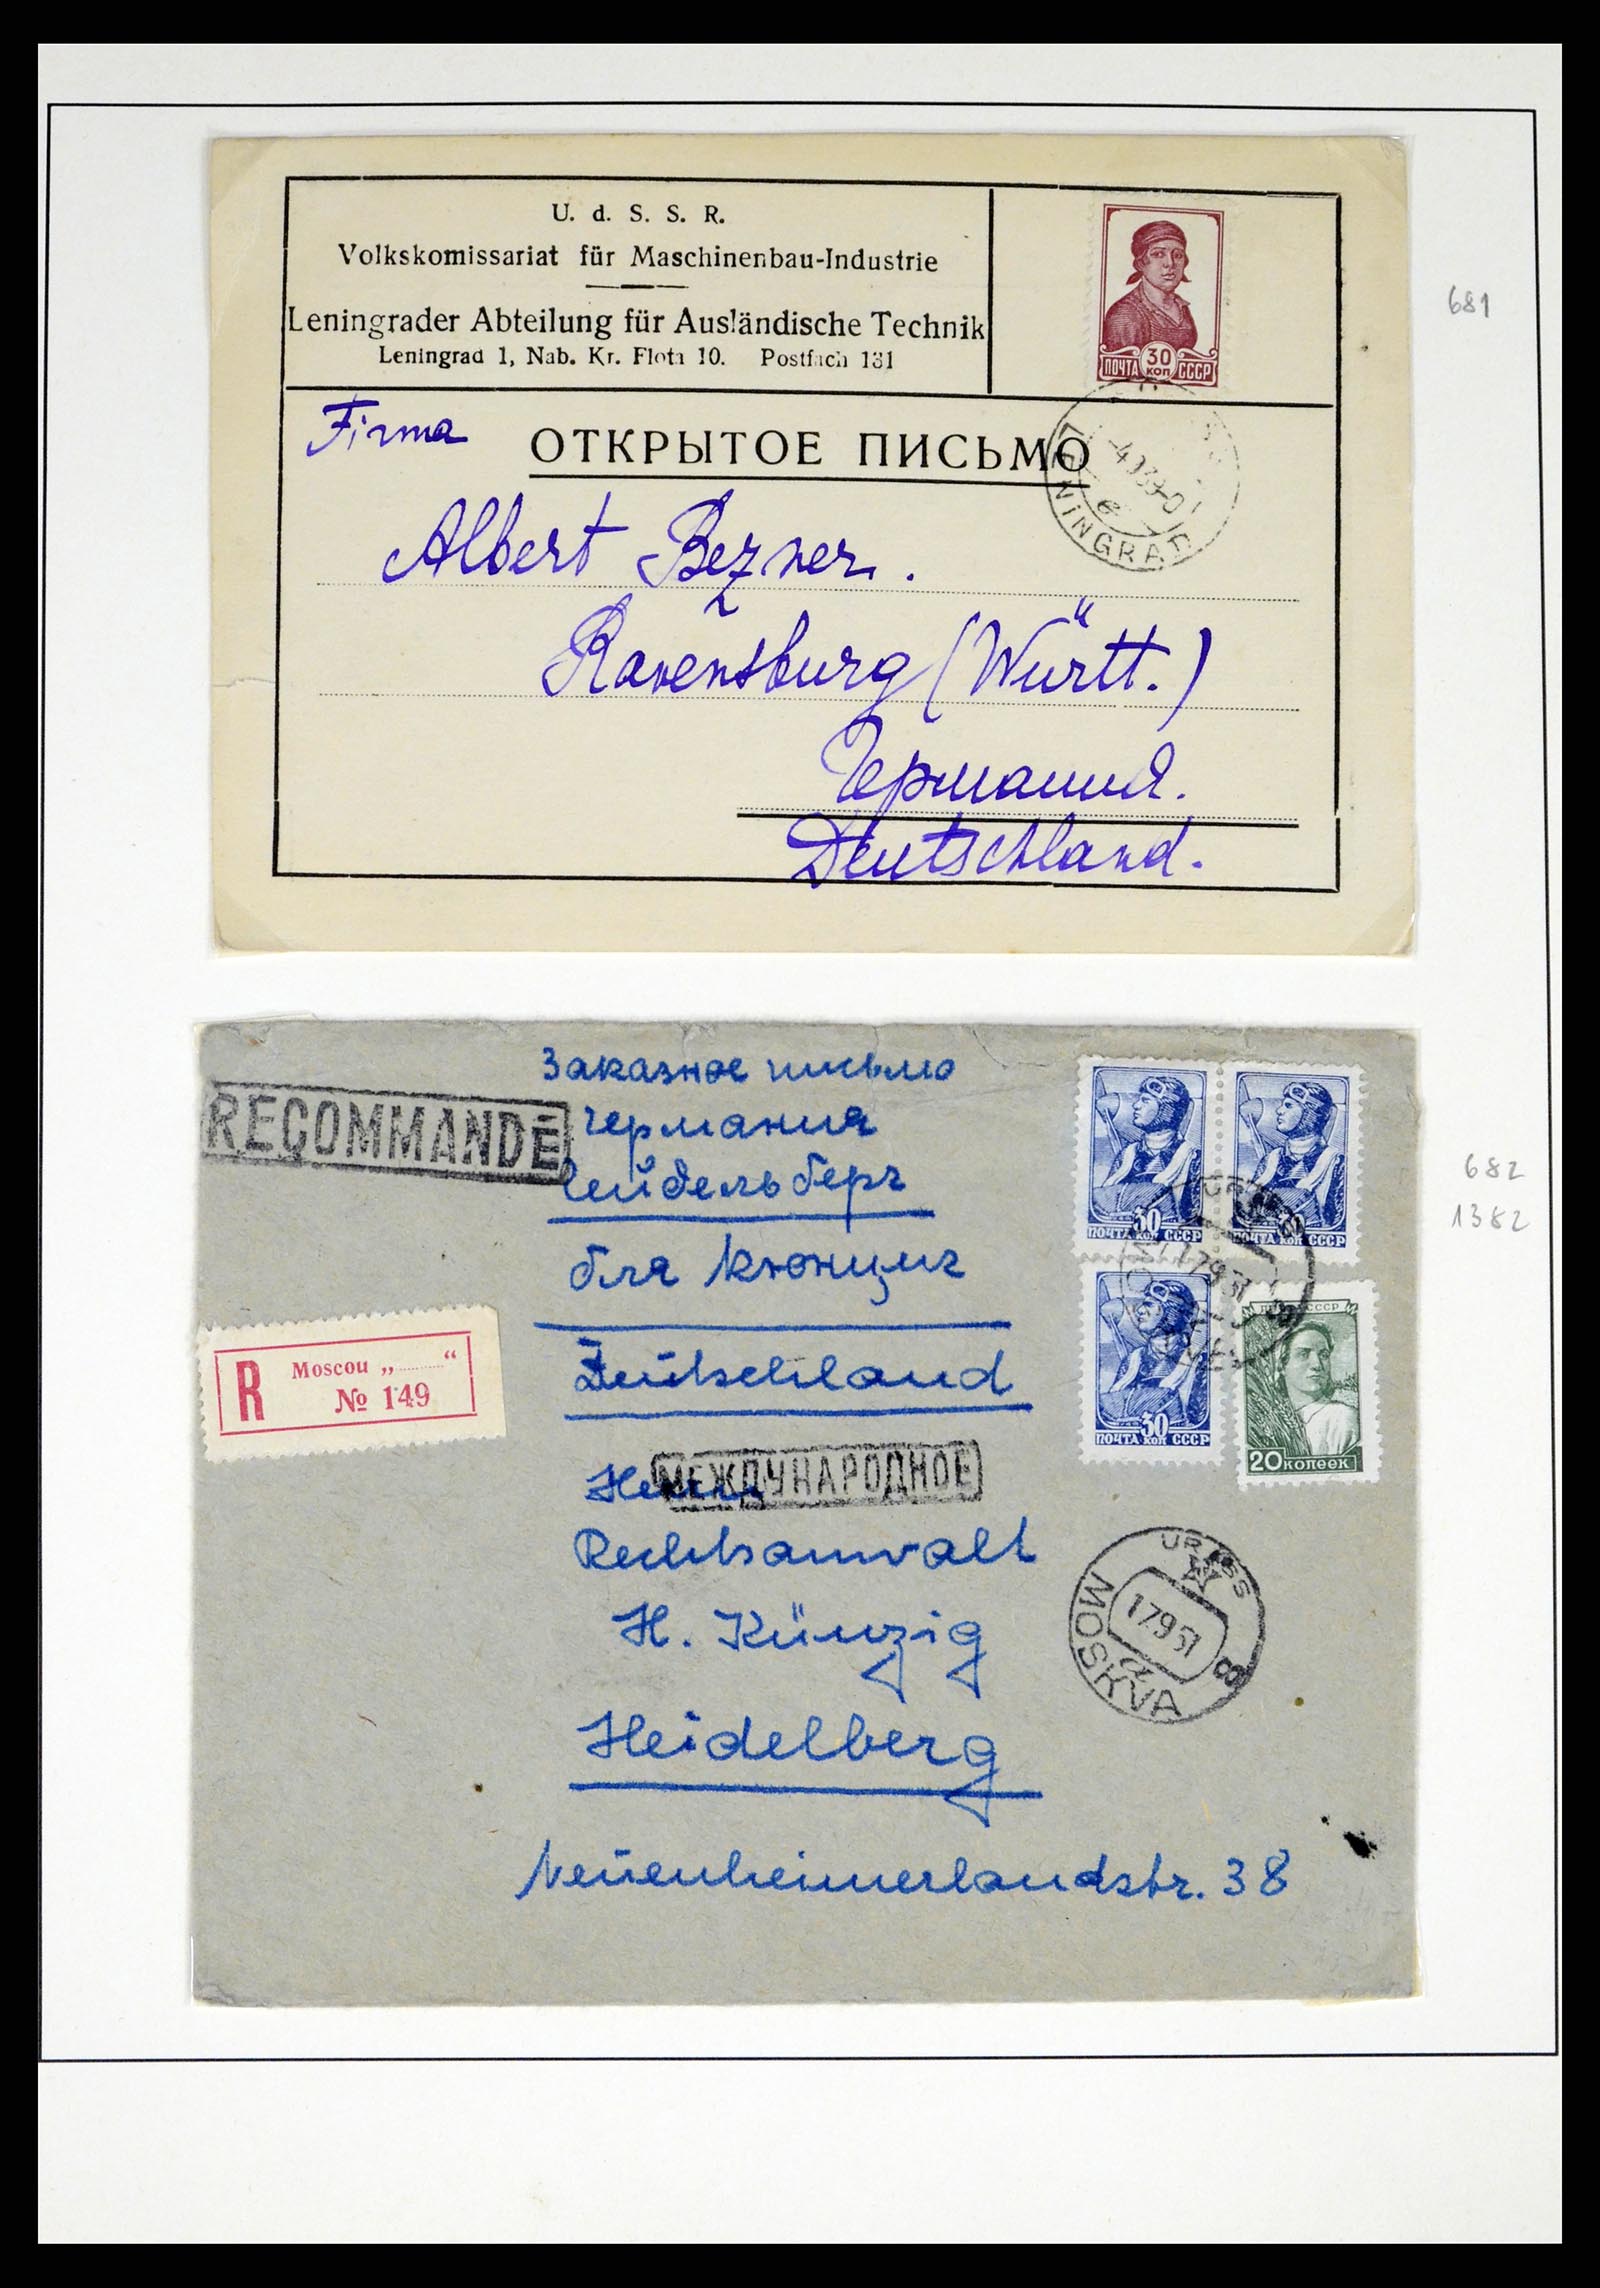 U. d. S. S. R.
Volkskomissariat für Maschinenbau-Industrie
Leningrader Abteilung für Ausländische Technik
Leningrad 1, Nab. Kr. Flota 10. Postfach 131
30
КОП
ПОЧТА СССР
681
Firma
ОТКРЫТОЕ ПИСЬМО
LENINGRAD
Albert Bezner.
Ravensburg (Württ.)
Германия.
Deutschland.
Заказное письмо
RECOMMANDÉ
Германия
Гейдельберг
для Кюнциг
Deutschland
30
ПОЧТА КОП СССР
30
ПОЧТА КОП СССР
30
ПОЧТА КОП СССР
20 КОПЕЕК
682
1382
R Moscou „ “
№ 149
МЕЖДУНАРОДНОЕ
Herrn
Rechtsanwalt
H. Künzig
Heidelberg
Neuenheimerlandstr. 38
URSS
17.9.51
8
MOSKVA